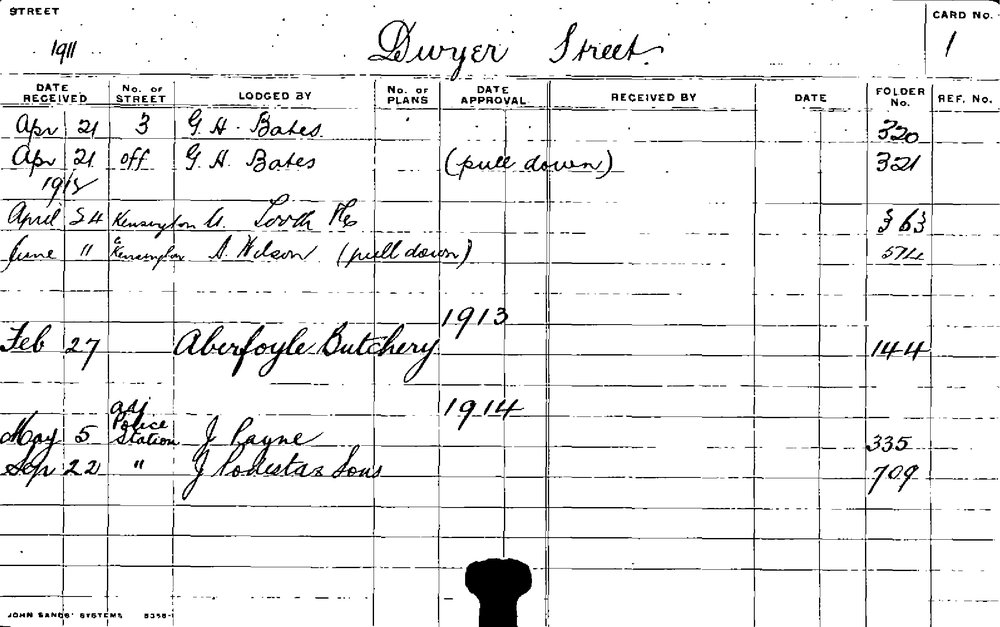 STREET
1911 Dwyer Street. CARD No. 1
DATE RECEIVED No. OF STREET LODGED BY No. OF PLANS DATE APPROVAL RECEIVED BY DATE FOLDER No. REF. No.
Apr 21 3 G. H. Bates. 320
Apr 21 off G. H. Bates (pull down) 321
1912
April 24 Kensington Tooth 363
June " Kensington Wilson (pull down) 574
1913
Feb 27 Aberfoyle Butchery 144
1914
adj
Police
May 5 Station J Payne 335
Sep 22 " J Podesta & Sons 709
JOHN SANDS' SYSTEMS 8358-1